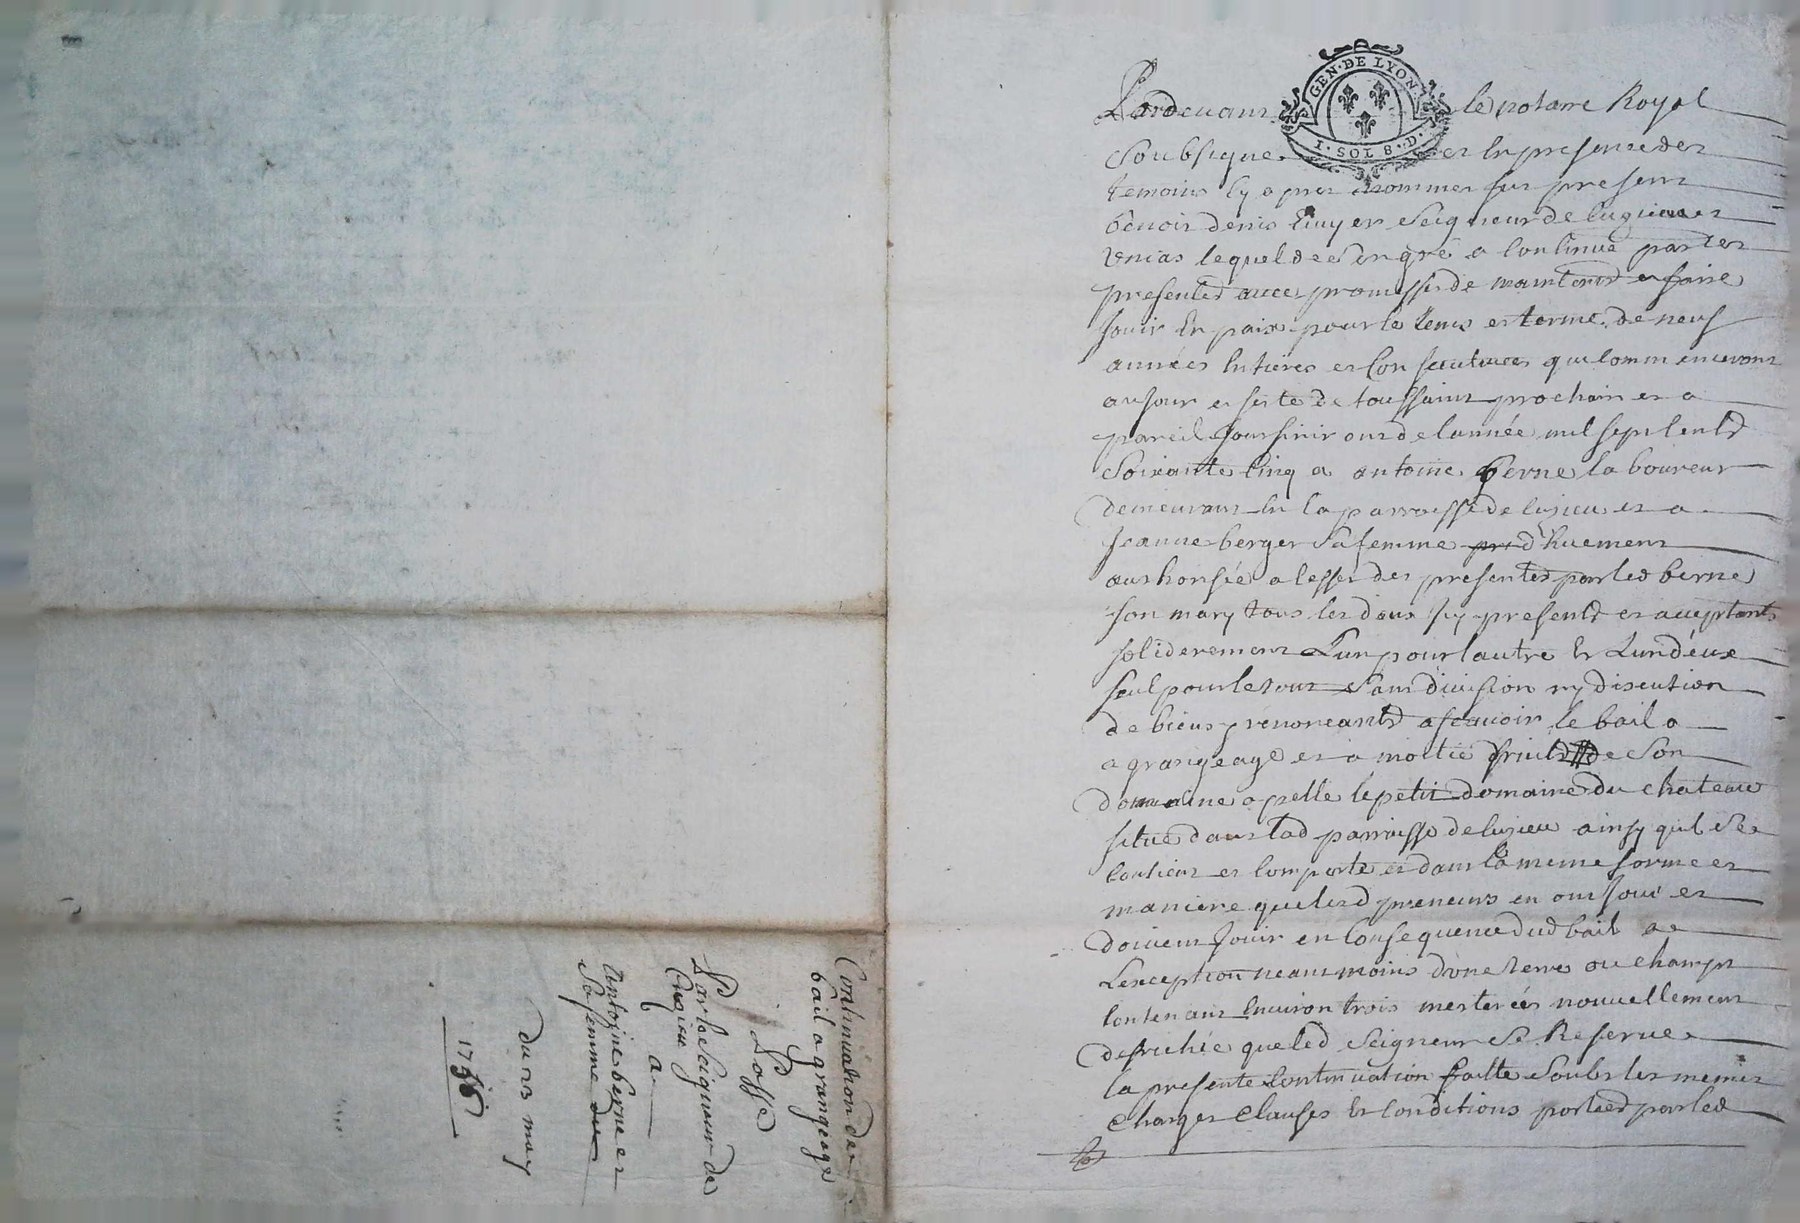 Pardevant le notaire Royal
Soubsigné et En presence des
temoins Cy apres nommes fut present
benoit denis Ecuyer Seigneur de Cuzieu et
Unias lequel de son gré a Continué par les
presentes avec promesse de maintenir et faire
Jouir En paix pour le tems et terme de neuf
années Entieres et Consecutives qui Commenceront
au Jour et feste de toussaint prochain et a
pareil Jour finiront de lannée mil sept Cents
Soixante Cinq a antoine berne laboureur
demeurant En la parroisse de Cuzieu et a
Jeanne berger Sa femme d'huement
authorisée a leffet des presentes par led berne
son mary tous les deux Icy presents et acceptants
soliderement L'un pour lautre Et L'un d'eux
seul pour le tout Sans division ny discution
de biens y renonceants a scavoir le bail a
a grangeage et a moitié fruits de Son
domaine apellé le petit domaine du chateau
situé dans lad parroisse de Cuzieu ainsy quil Se
Contient et Comporte et dans la meme forme et
maniere que lesd preneurs en ont Joui et
doivent Jouir en Consequence dud bail a
L'exception neantmoins d'une terre ou champt
Contenant Environ trois mesterées nouvellement
defrichée que led Seigneur Se Reserve
la presente Continuation faitte Soubs les memes
Charges Clauses Et Conditions portées par led
GEN · DE LYON
1 · SOL 8 · D ·
Continuation de
bail a grangeage
Passé
Par le Seigneur de
Cuzieu
a
Antoine berne et
Sa femme du
du 23 may
1756